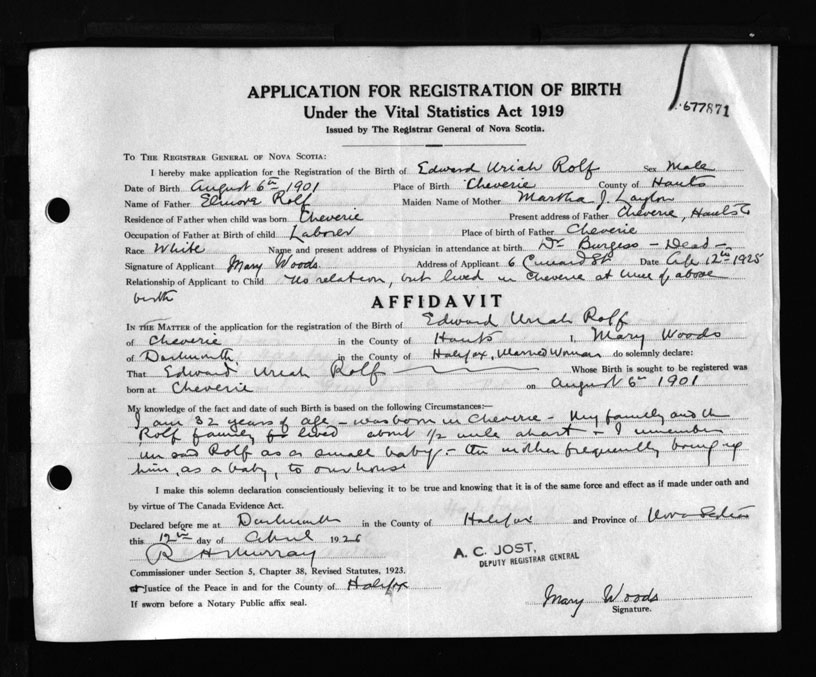 APPLICATION FOR REGISTRATION OF BIRTH
677871
Under the Vital Statistics Act 1919
Issued by The Registrar General of Nova Scotia.
To The Registrar General of Nova Scotia:
I hereby make application for the Registration of the Birth of Edward Uriah Rolf Sex Male
Date of Birth August 6th 1901 Place of Birth Cheverie County of Hants
Name of Father Elmore Rolf Maiden Name of Mother Martha J. Layton
Residence of Father when child was born Cheverie Present address of Father Cheverie, Hants
Occupation of Father at Birth of child Laborer Place of birth of Father Cheverie
Race White Name and present address of Physician in attendance at birth Dr Burgess - Dead -
Signature of Applicant Mary Woods Address of Applicant 6 St Date 12th
Relationship of Applicant to Child No relation, but lived in Cheverie at time of above
birth
AFFIDAVIT
In the Matter of the application for the registration of the Birth of Edward Uriah Rolf
of Cheverie in the County of Hants I, Mary Woods
of Dartmouth in the County of Halifax, Married Woman do solemnly declare:
That Edward Uriah Rolf Whose Birth is sought to be registered was
born at Cheverie on August 6th 1901
My knowledge of the fact and date of such Birth is based on the following Circumstances:—
I am 32 years of age - was born in Cheverie - My family and the
Rolf family lived about 1/2 mile apart - I remember
the said Rolf as a small baby - the mother frequently bringing
him, as a baby, to our house
I make this solemn declaration conscientiously believing it to be true and knowing that it is of the same force and effect as if made under oath and
by virtue of The Canada Evidence Act.
Declared before me at Dartmouth in the County of Halifax and Province of Nova Scotia
this 12th day of April 1926
R H Murray
A. C. JOST,
DEPUTY REGISTRAR GENERAL
Commissioner under Section 5, Chapter 38, Revised Statutes, 1923.
or Justice of the Peace in and for the County of Halifax
If sworn before a Notary Public affix seal.
Mary Woods
Signature.